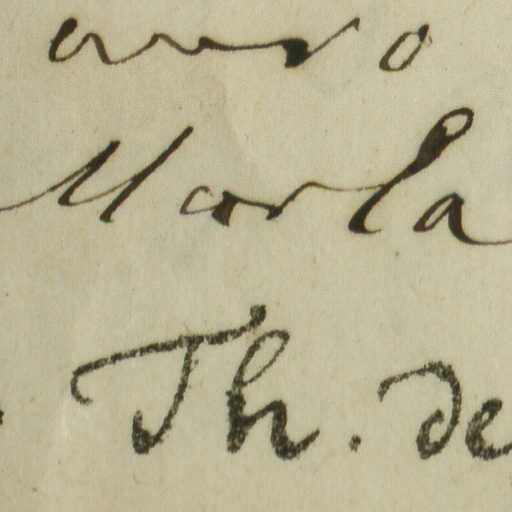 Marla
Th. de